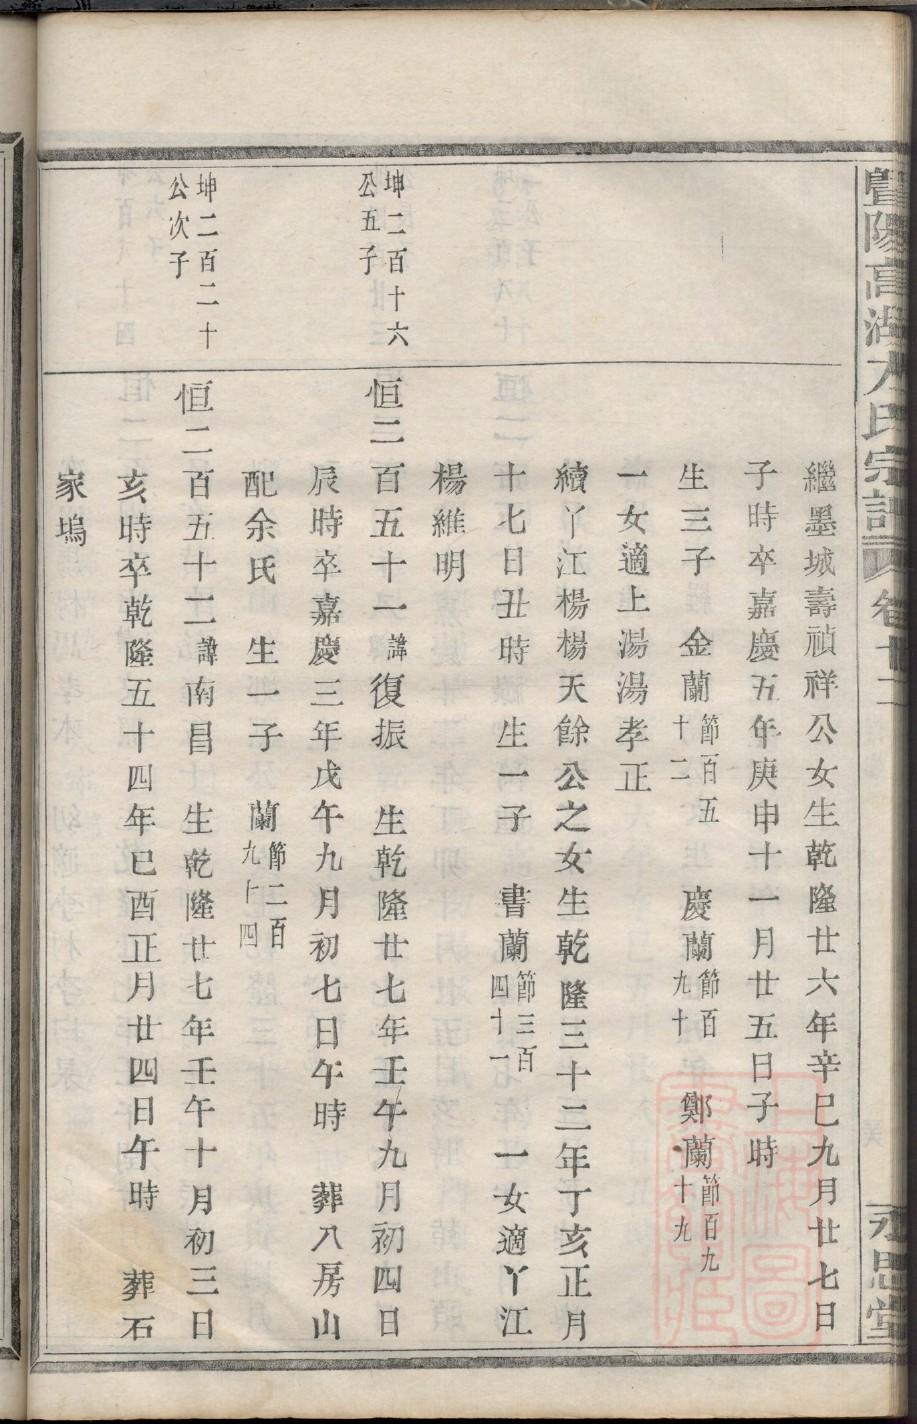 暨陽高湖方氏宗譜 卷十二 永思堂
繼墨城壽禎祥公女生乾隆廿六年辛巳九月廿七日
子時卒嘉慶五年庚申十一月廿五日子時
生三子 金蘭節百五十二 慶蘭節百九十 鄭蘭節百九十九
一女適上湯湯孝正
續丫江楊楊天餘公之女生乾隆三十二年丁亥正月
十七日丑時 生一子 書蘭節三百四十一 一女適丫江
楊維明
坤二百十六公五子
恒二百五十一諱復振 生乾隆廿七年壬午九月初四日
辰時卒嘉慶三年戊午九月初七日午時 葬八房山
配余氏 生一子 蘭節二百九十四
坤二百二十公次子
恒二百五十二諱南昌 生乾隆廿七年壬午十月初三日
亥時卒乾隆五十四年巳酉正月廿四日午時 葬石
家塢